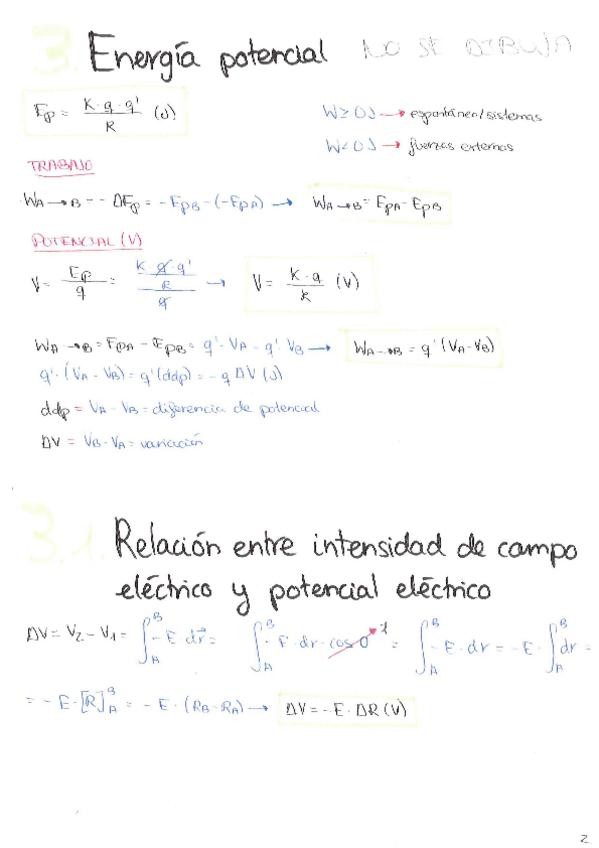 3. Energía potencial NO SE DIBUJA
Ep = K·q·q' / R (J)
W≥0J → espontáneo/sistemas
W<0J → fuerzas externas
TRABAJO
WA→B = - ΔEp = -EpB - (-EpA) → WA→B = EpA - EpB
POTENCIAL (V)
V = Ep / q = K·q·q' / R / q → V = K·q / R (V)
WA→B = EpA - EpB = q'·VA - q' VB → WA→B = q' (VA - VB)
q'·(VA - VB) = q' (ddp) = -q ΔV (J)
ddp = VA - VB = diferencia de potencial
ΔV = VB - VA = variación
3.1. Relación entre intensidad de campo
eléctrico y potencial eléctrico
ΔV = V2 - V1 = ∫AB -E dr⃗ = ∫AB -E·dr·cos 0 1 = ∫AB -E·dr = -E·∫AB dr =
= -E·[R]AB = -E·(RB - RA) → ΔV = -E·ΔR (V)
2